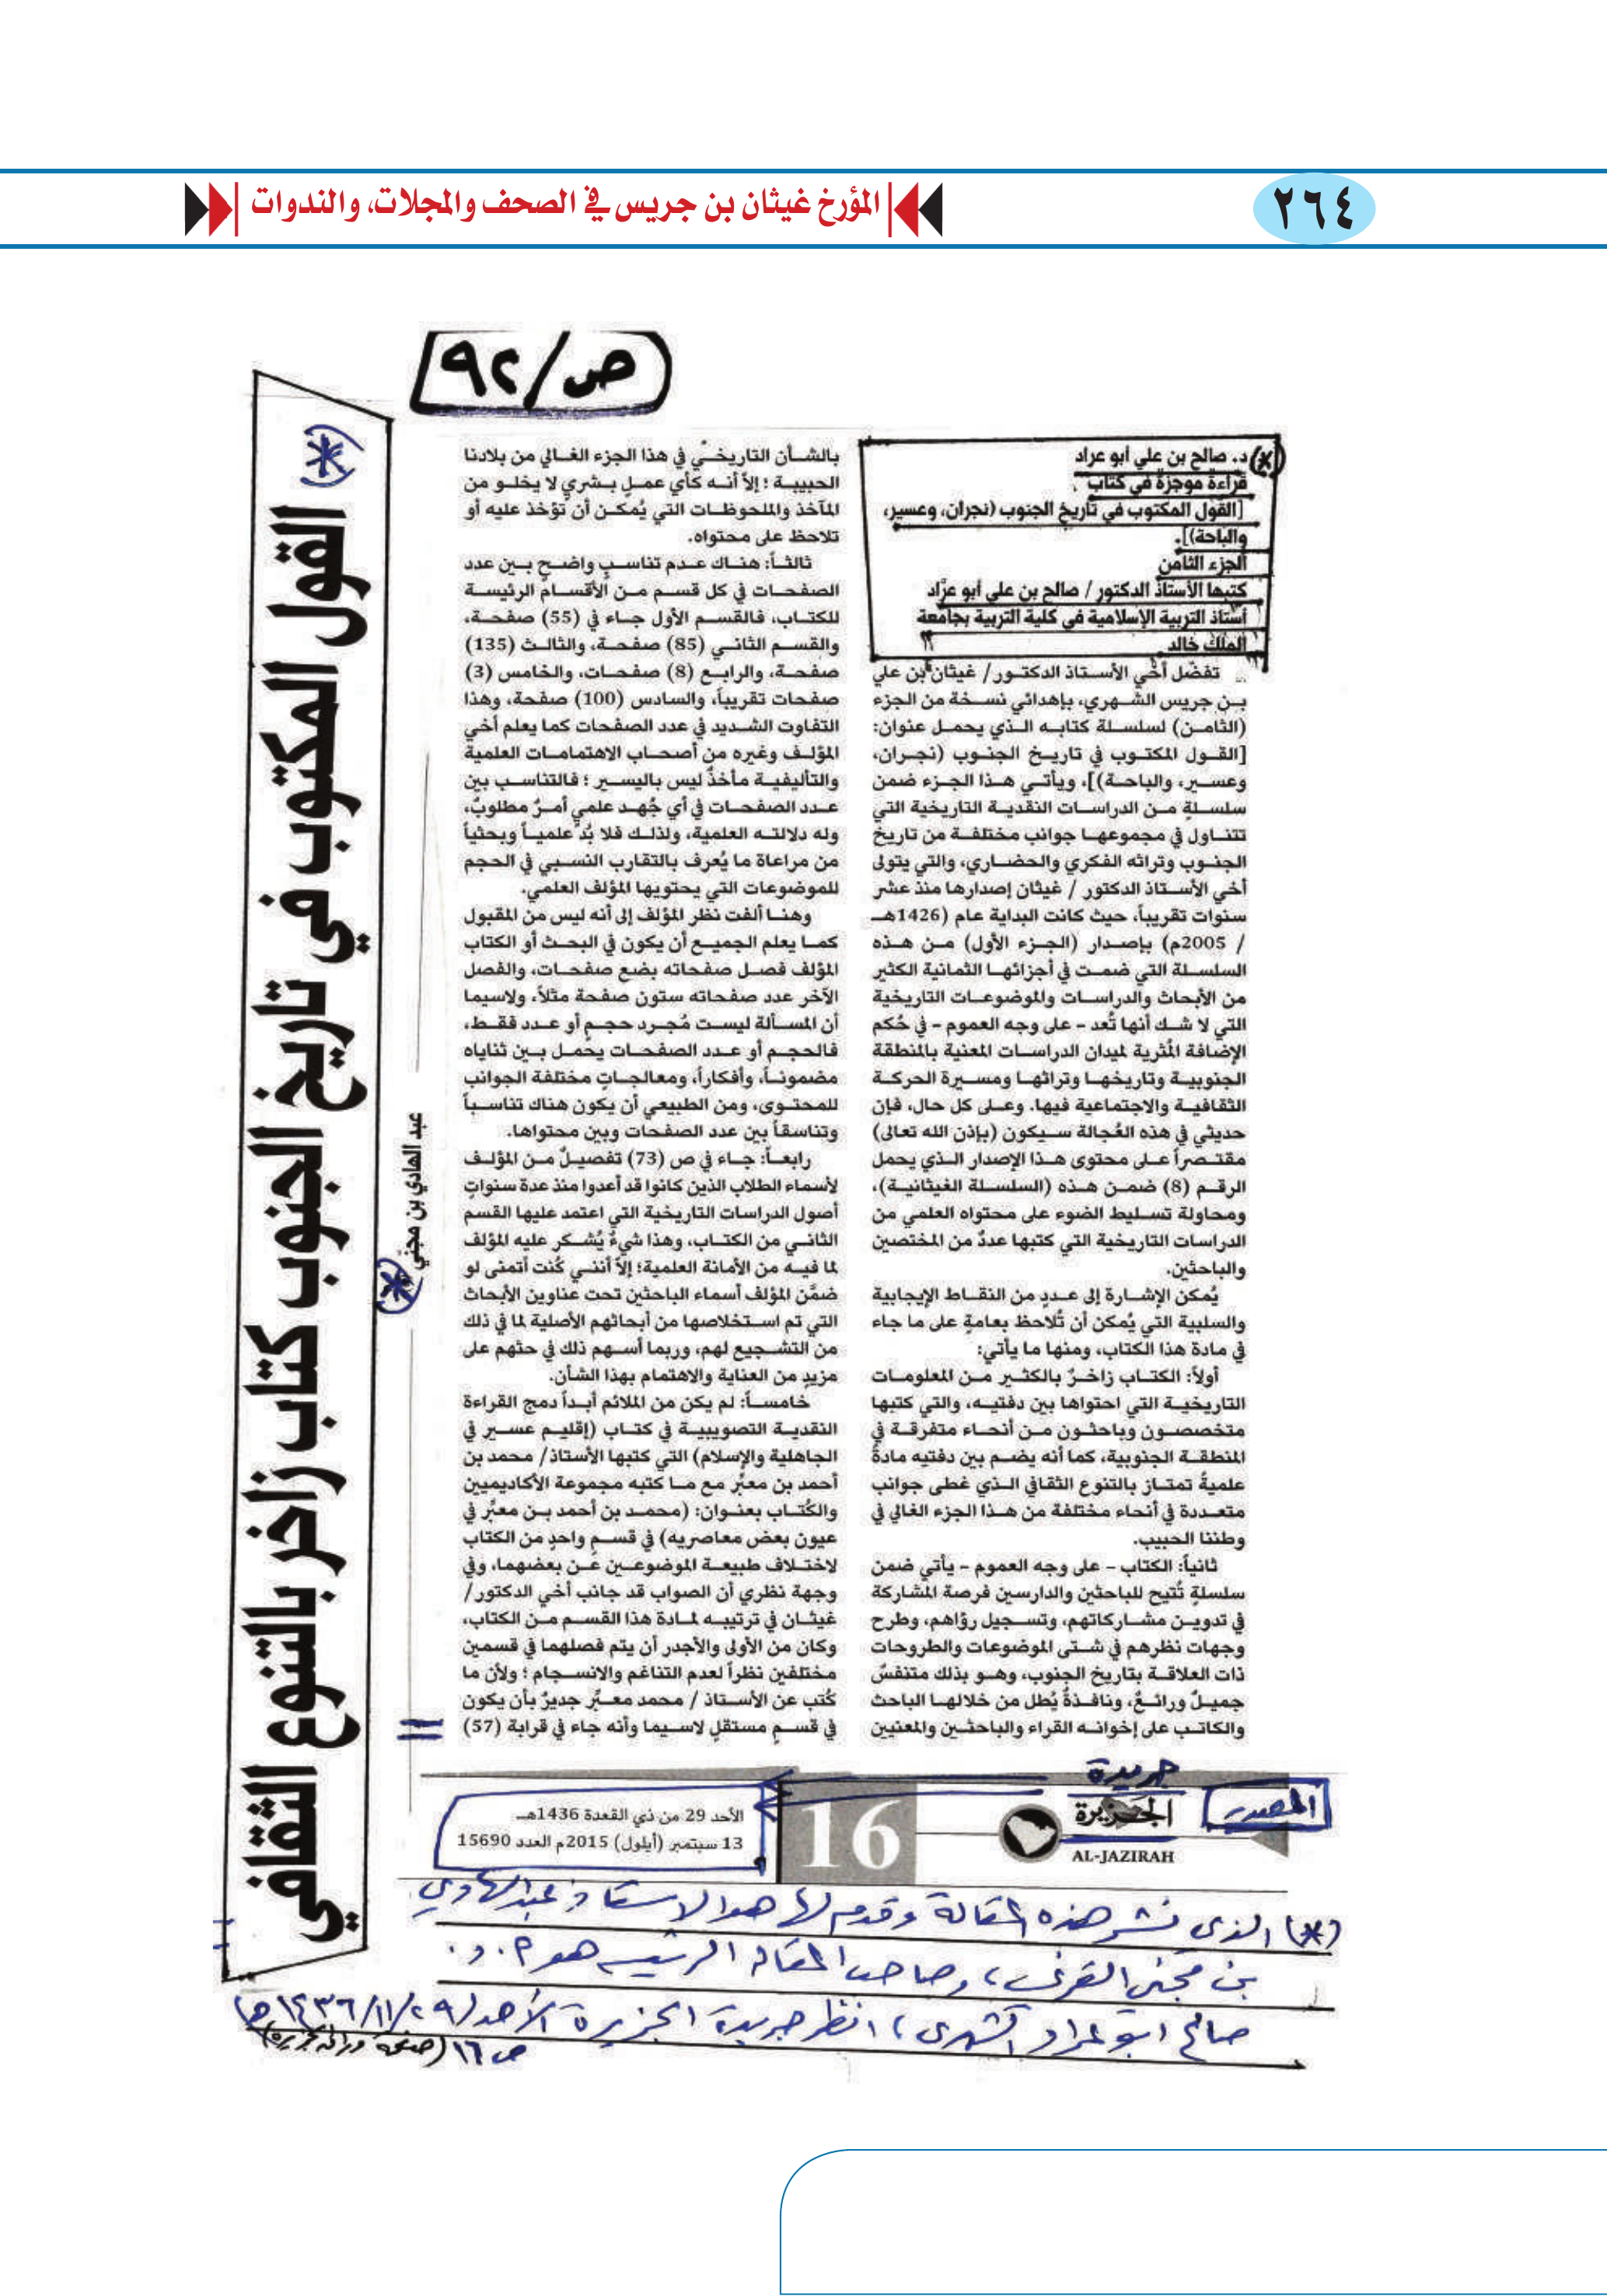 ٢٦٤
المؤرخ غيثان بن جريس في الصحف والمجلات، والندوات
ص/٩٢
القول المكتوب في تاريخ الجنوب كتاب زاخر بالتنوع الثقافي (*)
عبد الهادي بن مجنّي (*)
(*) د. صالح بن علي أبو عراد
قراءة موجزة في كتاب
[القول المكتوب في تاريخ الجنوب (نجران، وعسير،
والباحة)].
الجزء الثامن
كتبها الأستاذ الدكتور / صالح بن علي أبو عرَّاد
أستاذ التربية الإسلامية في كلية التربية بجامعة
الملك خالد
تفضّل أخي الأستاذ الدكتور/ غيثان بن علي
بن جريس الشهري، بإهدائي نسخة من الجزء
(الثامن) لسلسلة كتابه الذي يحمل عنوان:
[القول المكتوب في تاريخ الجنوب (نجران،
وعسير، والباحة)]، ويأتي هذا الجزء ضمن
سلسلةٍ من الدراسات النقدية التاريخية التي
تتناول في مجموعها جوانب مختلفة من تاريخ
الجنوب وتراثه الفكري والحضاري، والتي يتولى
أخي الأستاذ الدكتور / غيثان إصدارها منذ عشر
سنوات تقريباً، حيث كانت البداية عام (1426هـ
/ 2005م) بإصدار (الجزء الأول) من هذه
السلسلة التي ضمت في أجزائها الثمانية الكثير
من الأبحاث والدراسات والموضوعات التاريخية
التي لا شك أنها تُعد - على وجه العموم - في حُكم
الإضافة المُثرية لميدان الدراسات المعنية بالمنطقة
الجنوبية وتاريخها وتراثها ومسيرة الحركة
الثقافية والاجتماعية فيها. وعلى كل حال، فإن
حديثي في هذه العُجالة سيكون (بإذن الله تعالى)
مقتصراً على محتوى هذا الإصدار الذي يحمل
الرقم (8) ضمن هذه (السلسلة الغيثانية)،
ومحاولة تسليط الضوء على محتواه العلمي من
الدراسات التاريخية التي كتبها عددٌ من المختصين
والباحثين.
يُمكن الإشارة إلى عددٍ من النقاط الإيجابية
والسلبية التي يُمكن أن تُلاحظ بعامةٍ على ما جاء
في مادة هذا الكتاب، ومنها ما يأتي:
أولاً: الكتاب زاخرٌ بالكثير من المعلومات
التاريخية التي احتواها بين دفتيه، والتي كتبها
متخصصون وباحثون من أنحاء متفرقة في
المنطقة الجنوبية، كما أنه يضم بين دفتيه مادةً
علميةً تمتاز بالتنوع الثقافي الذي غطى جوانب
متعددة في أنحاء مختلفة من هذا الجزء الغالي في
وطننا الحبيب.
ثانياً: الكتاب - على وجه العموم - يأتي ضمن
سلسلةٍ تُتيح للباحثين والدارسين فرصة المشاركة
في تدوين مشاركاتهم، وتسجيل رؤاهم، وطرح
وجهات نظرهم في شتى الموضوعات والطروحات
ذات العلاقة بتاريخ الجنوب، وهو بذلك متنفسٌ
جميلٌ ورائعٌ، ونافذةٌ يُطل من خلالها الباحث
والكاتب على إخوانه القراء والباحثين والمعنيين
بالشأن التاريخي في هذا الجزء الغالي من بلادنا
الحبيبة ؛ إلاَّ أنه كأي عملٍ بشريٍ لا يخلو من
المآخذ والملحوظات التي يُمكن أن تُؤخذ عليه أو
تلاحظ على محتواه.
ثالثاً: هناك عدم تناسبٍ واضحٍ بين عدد
الصفحات في كل قسم من الأقسام الرئيسة
للكتاب، فالقسم الأول جاء في (55) صفحة،
والقسم الثاني (85) صفحة، والثالث (135)
صفحة، والرابع (8) صفحات، والخامس (3)
صفحات تقريباً، والسادس (100) صفحة، وهذا
التفاوت الشديد في عدد الصفحات كما يعلم أخي
المؤلف وغيره من أصحاب الاهتمامات العلمية
والتأليفية مأخذٌ ليس باليسير ؛ فالتناسب بين
عدد الصفحات في أي جُهد علمي أمرٌ مطلوبٌ،
وله دلالته العلمية، ولذلك فلا بُد علمياً وبحثياً
من مراعاة ما يُعرف بالتقارب النسبي في الحجم
للموضوعات التي يحتويها المؤلف العلمي.
وهنا ألفت نظر المؤلف إلى أنه ليس من المقبول
كما يعلم الجميع أن يكون في البحث أو الكتاب
المؤلف فصل صفحاته بضع صفحات، والفصل
الآخر عدد صفحاته ستون صفحة مثلاً، ولاسيما
أن المسألة ليست مُجرد حجمٍ أو عدد فقط،
فالحجم أو عدد الصفحات يحمل بين ثناياه
مضموناً، وأفكاراً، ومعالجاتٍ مختلفة الجوانب
للمحتوى، ومن الطبيعي أن يكون هناك تناسباً
وتناسقاً بين عدد الصفحات وبين محتواها.
رابعاً: جاء في ص (73) تفصيلٌ من المؤلف
لأسماء الطلاب الذين كانوا قد أعدوا منذ عدة سنواتٍ
أصول الدراسات التاريخية التي اعتمد عليها القسم
الثاني من الكتاب، وهذا شيءٌ يُشكر عليه المؤلف
لما فيه من الأمانة العلمية؛ إلاَّ أنني كُنت أتمنى لو
ضمَّن المؤلف أسماء الباحثين تحت عناوين الأبحاث
التي تم استخلاصها من أبحاثهم الأصلية لما في ذلك
من التشجيع لهم، وربما أسهم ذلك في حثهم على
مزيدٍ من العناية والاهتمام بهذا الشأن.
خامساً: لم يكن من الملائم أبداً دمج القراءة
النقدية التصويبية في كتاب (إقليم عسير في
الجاهلية والإسلام) التي كتبها الأستاذ/ محمد بن
أحمد بن معبِّر مع ما كتبه مجموعة الأكاديميين
والكُتاب بعنوان: (محمد بن أحمد بن معبِّر في
عيون بعض معاصريه) في قسمٍ واحدٍ من الكتاب
لاختلاف طبيعة الموضوعين عن بعضهما، وفي
وجهة نظري أن الصواب قد جانب أخي الدكتور/
غيثان في ترتيبه لمادة هذا القسم من الكتاب،
وكان من الأولى والأجدر أن يتم فصلهما في قسمين
مختلفين نظراً لعدم التناغم والانسجام ؛ ولأن ما
كُتب عن الأستاذ / محمد معبِّر جديرٌ بأن يكون
في قسمٍ مستقلٍ لاسيما وأنه جاء في قرابة (57)
المصدر
جريدة
الجزيرة
AL-JAZIRAH
16
الأحد 29 من ذي القعدة 1436هـ
13 سبتمبر (أيلول) 2015م العدد 15690
(*) الذي نشر هذه المقالة وقدم لها هو الاستاذ عبدالهادي
بن مجني القرني، وصاحب المقال الرئيس هو أ. د.
صالح ابو عراد الشهري، انظر جريدة الجزيرة الأحد (٢٩/١١/١٤٣٦هـ)
ص١٦ (صفحة وراق الجزيرة)